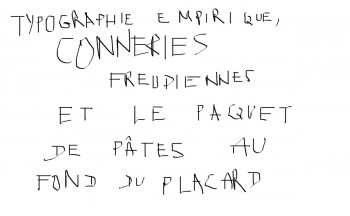 TYPOGRAPHIE EMPIRIQUE,
CONNERIES
FREUDIENNES
ET LE PAQUET
DE PÂTES AU
FOND DU PLACARD